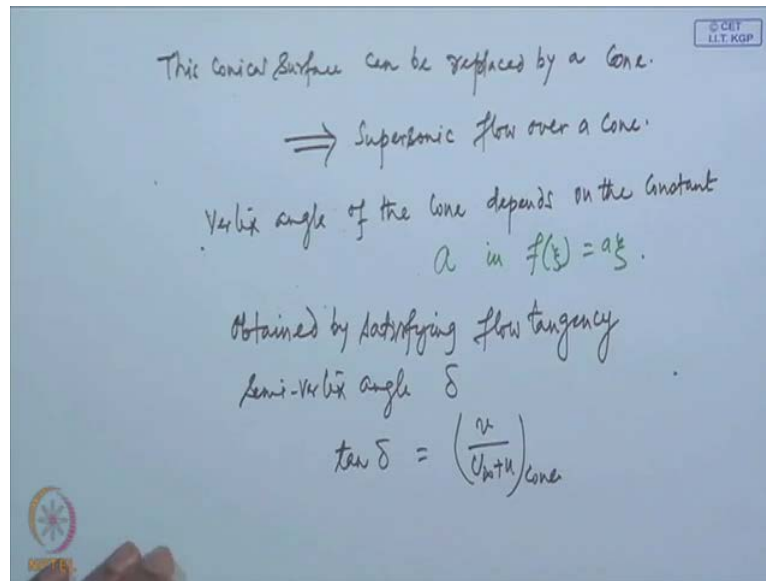 © CET
I.I.T. KGP
This Conical Surface can be replaced by a Cone.
⟹ Supersonic flow over a Cone.
Vertix angle of the Cone depends on the Constant
a in f(ξ) = aξ.
obtained by satisfying flow tangency
Semi-Vertix angle δ
tan δ = (v / U∞+u)cone
NPTEL